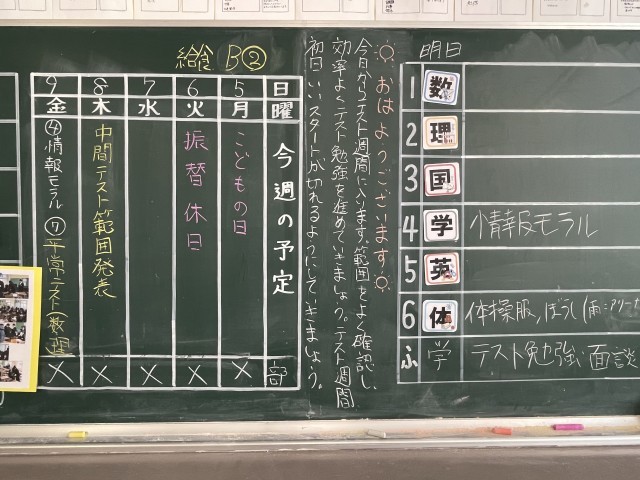 給食 B②
日 5 6 7 8 9
曜 月 火 水 木 金
今週の予定
こどもの日
振替休日
中間テスト範囲発表
④情報モラル ⑦平常テスト(数理
部 × × × × ×
おはようございます
今日からテスト週間に入います。範囲をよく確認し、
効率よくテスト勉強を進めていきましょう。テスト週間
初日、いいスタートが切れるようにしていきましょう。
明日
1 数
2 理
3 国
4 学 情報モラル
5 英
6 体 体操服、ぼうし(雨:アリーナ
ふ 学 テスト勉強・面談